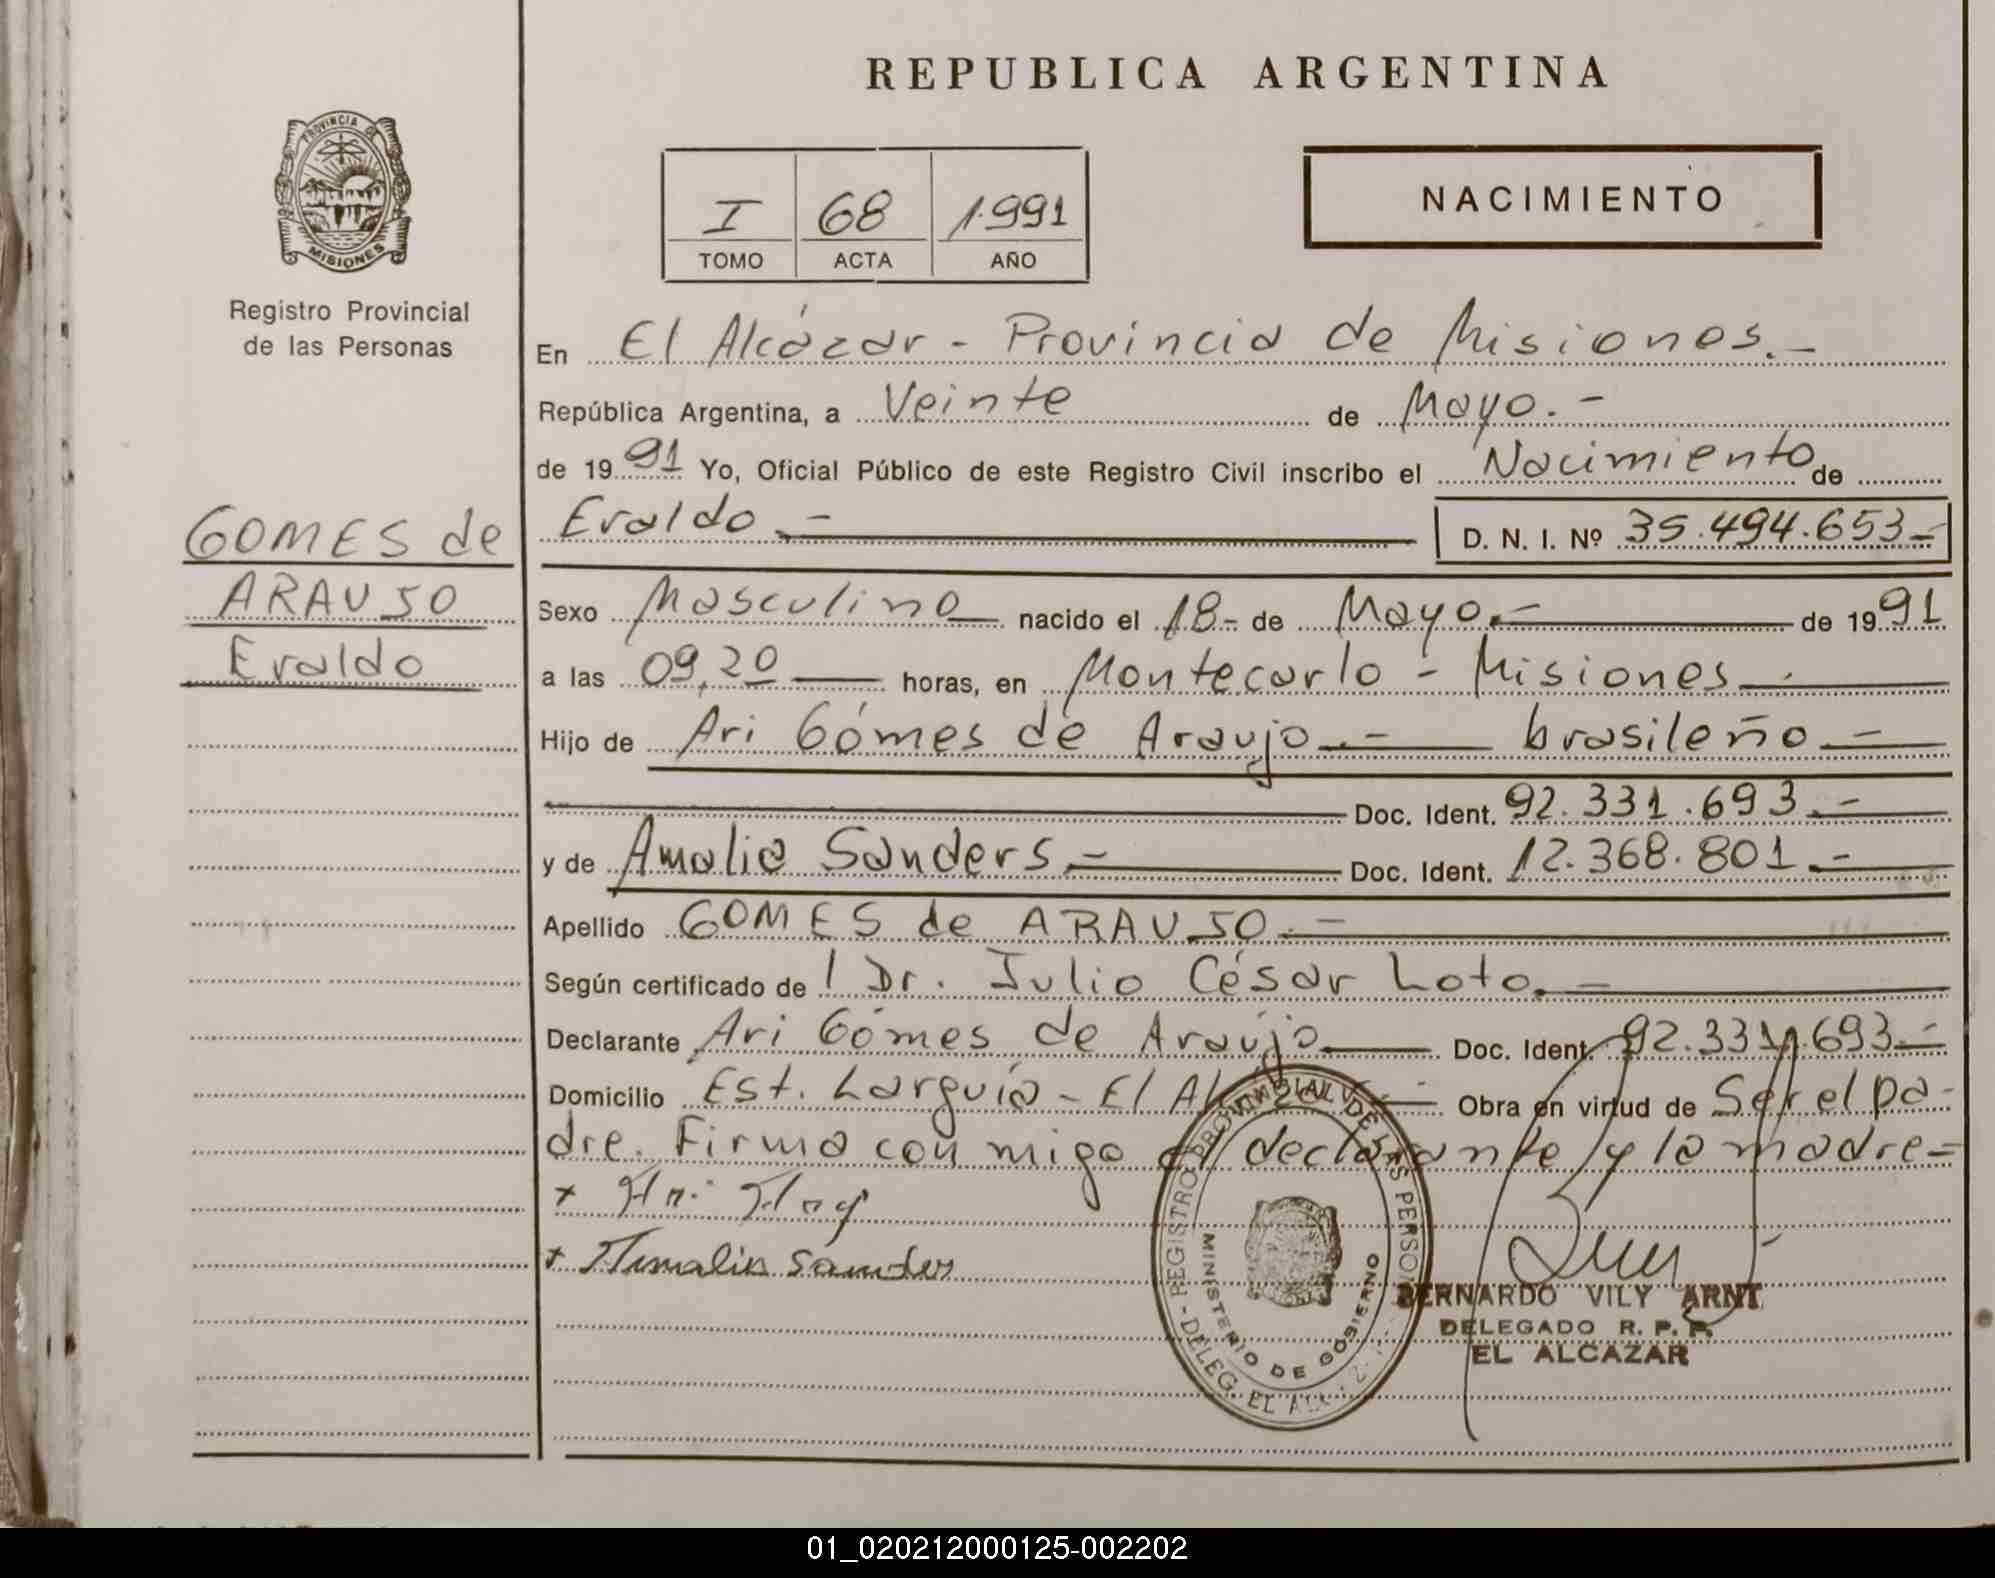 REPUBLICA ARGENTINA
PROVINCIA DE
MISIONES
Registro Provincial
de las Personas
I 68 1.991
TOMO ACTA AÑO
NACIMIENTO
En El Alcázar - Provincia de Misiones.-
República Argentina, a Veinte de Mayo.-
de 1991 Yo, Oficial Público de este Registro Civil inscribo el Nacimiento de
Eraldo.- D. N. I. Nº 35.494.653-
GOMES de
ARAUJO
Eraldo
Sexo Masculino nacido el 18- de Mayo.- de 1991
a las 09,20 horas, en Montecarlo - Misiones
Hijo de Ari Gómes de Araujo.- brasileño-
Doc. Ident. 92.331.693.-
y de Amalia Sanders.- Doc. Ident. 12.368.801.-
Apellido GOMES de ARAUJO.-
Según certificado de l Dr. Julio César Loto.-
Declarante Ari Gómes de Araújo Doc. Ident. 92.331.693-
Domicilio Est. Larguía - El Obra en virtud de Ser el pa-
dre. Firma con migo el declarante y la madre=
+
+ Amalia Sander
REGISTRO PROVINCIAL DE LAS PERSONAS
MINISTERIO DE GOBIERNO
DELEG. EL
BERNARDO VILY ARNT
DELEGADO R. P. P.
EL ALCAZAR
01_020212000125-002202